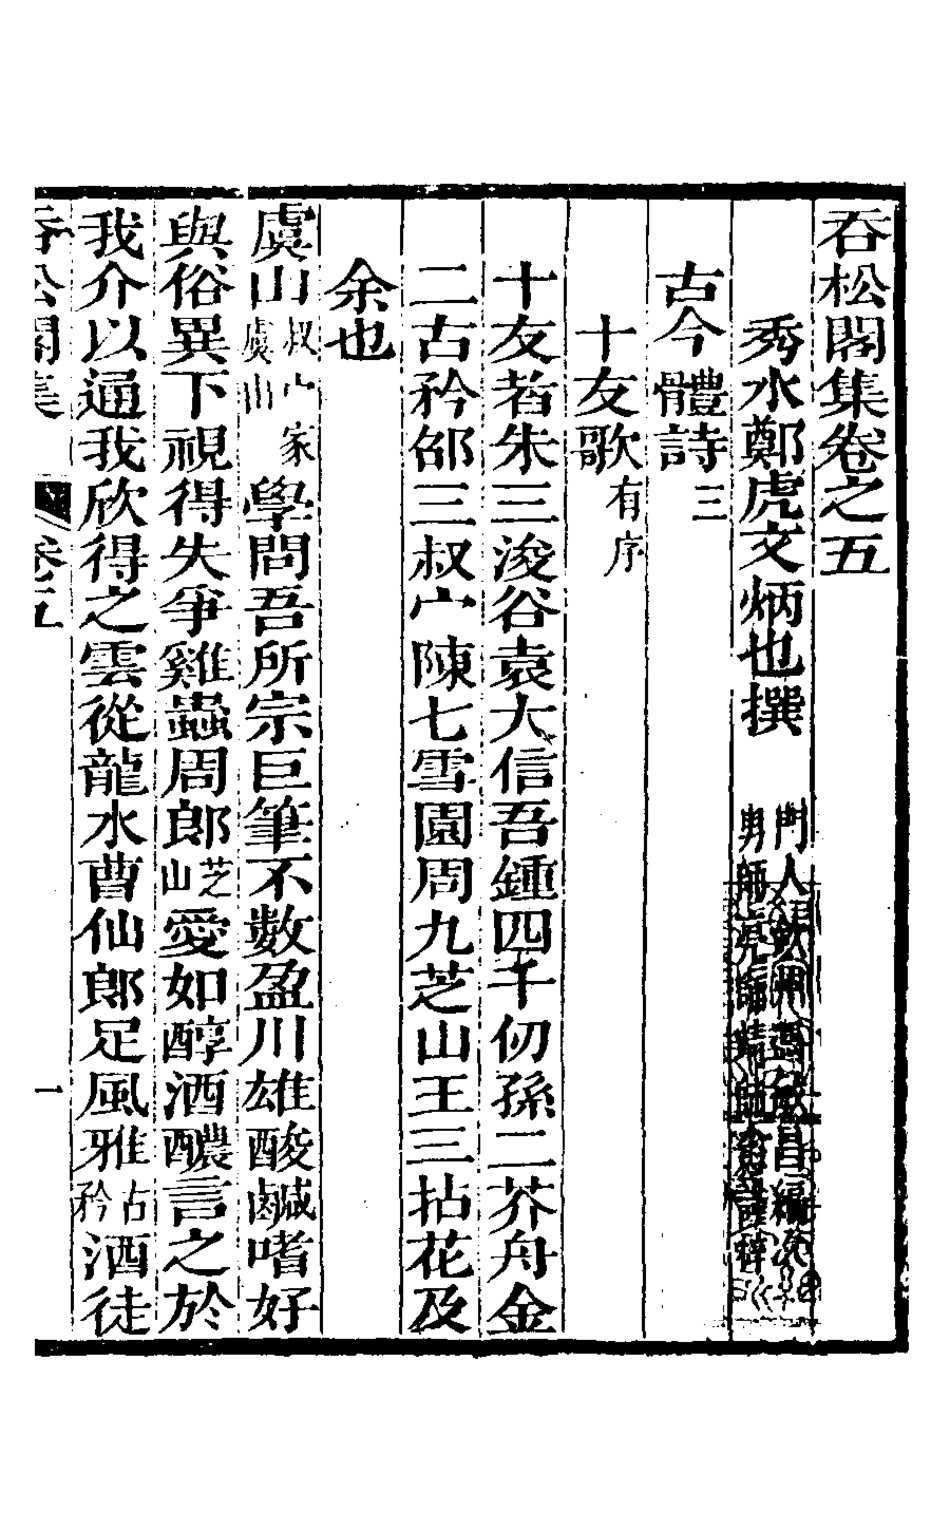 吞松閣集卷之五
秀水鄭虎文炳也撰
門人歙州昌編次
男師亮師靖師謹梓
古今體詩三
十友歌有序
十友者朱三浚谷袁大信吾鍾四千仞孫二芥舟金
二古矜邰三叔宀陳七雪園周九芝山王三拈花及
余也
虞山叔宀家虞山學問吾所宗巨筆不數盈川雄酸鹹嗜好
與俗異下視得失爭雞蟲周郎芝山愛如醇酒醲言之於
我介以通我欣得之雲從龍水曹仙郎足風雅古矜酒徒
吞松閣集 卷五 一